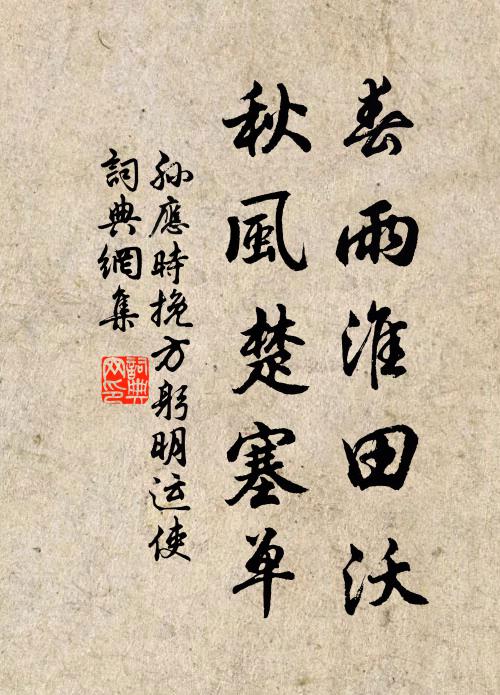 春雨淮田沃
秋風楚塞单
孙應時挽方躬明运使
詞典網集
詞典
网印